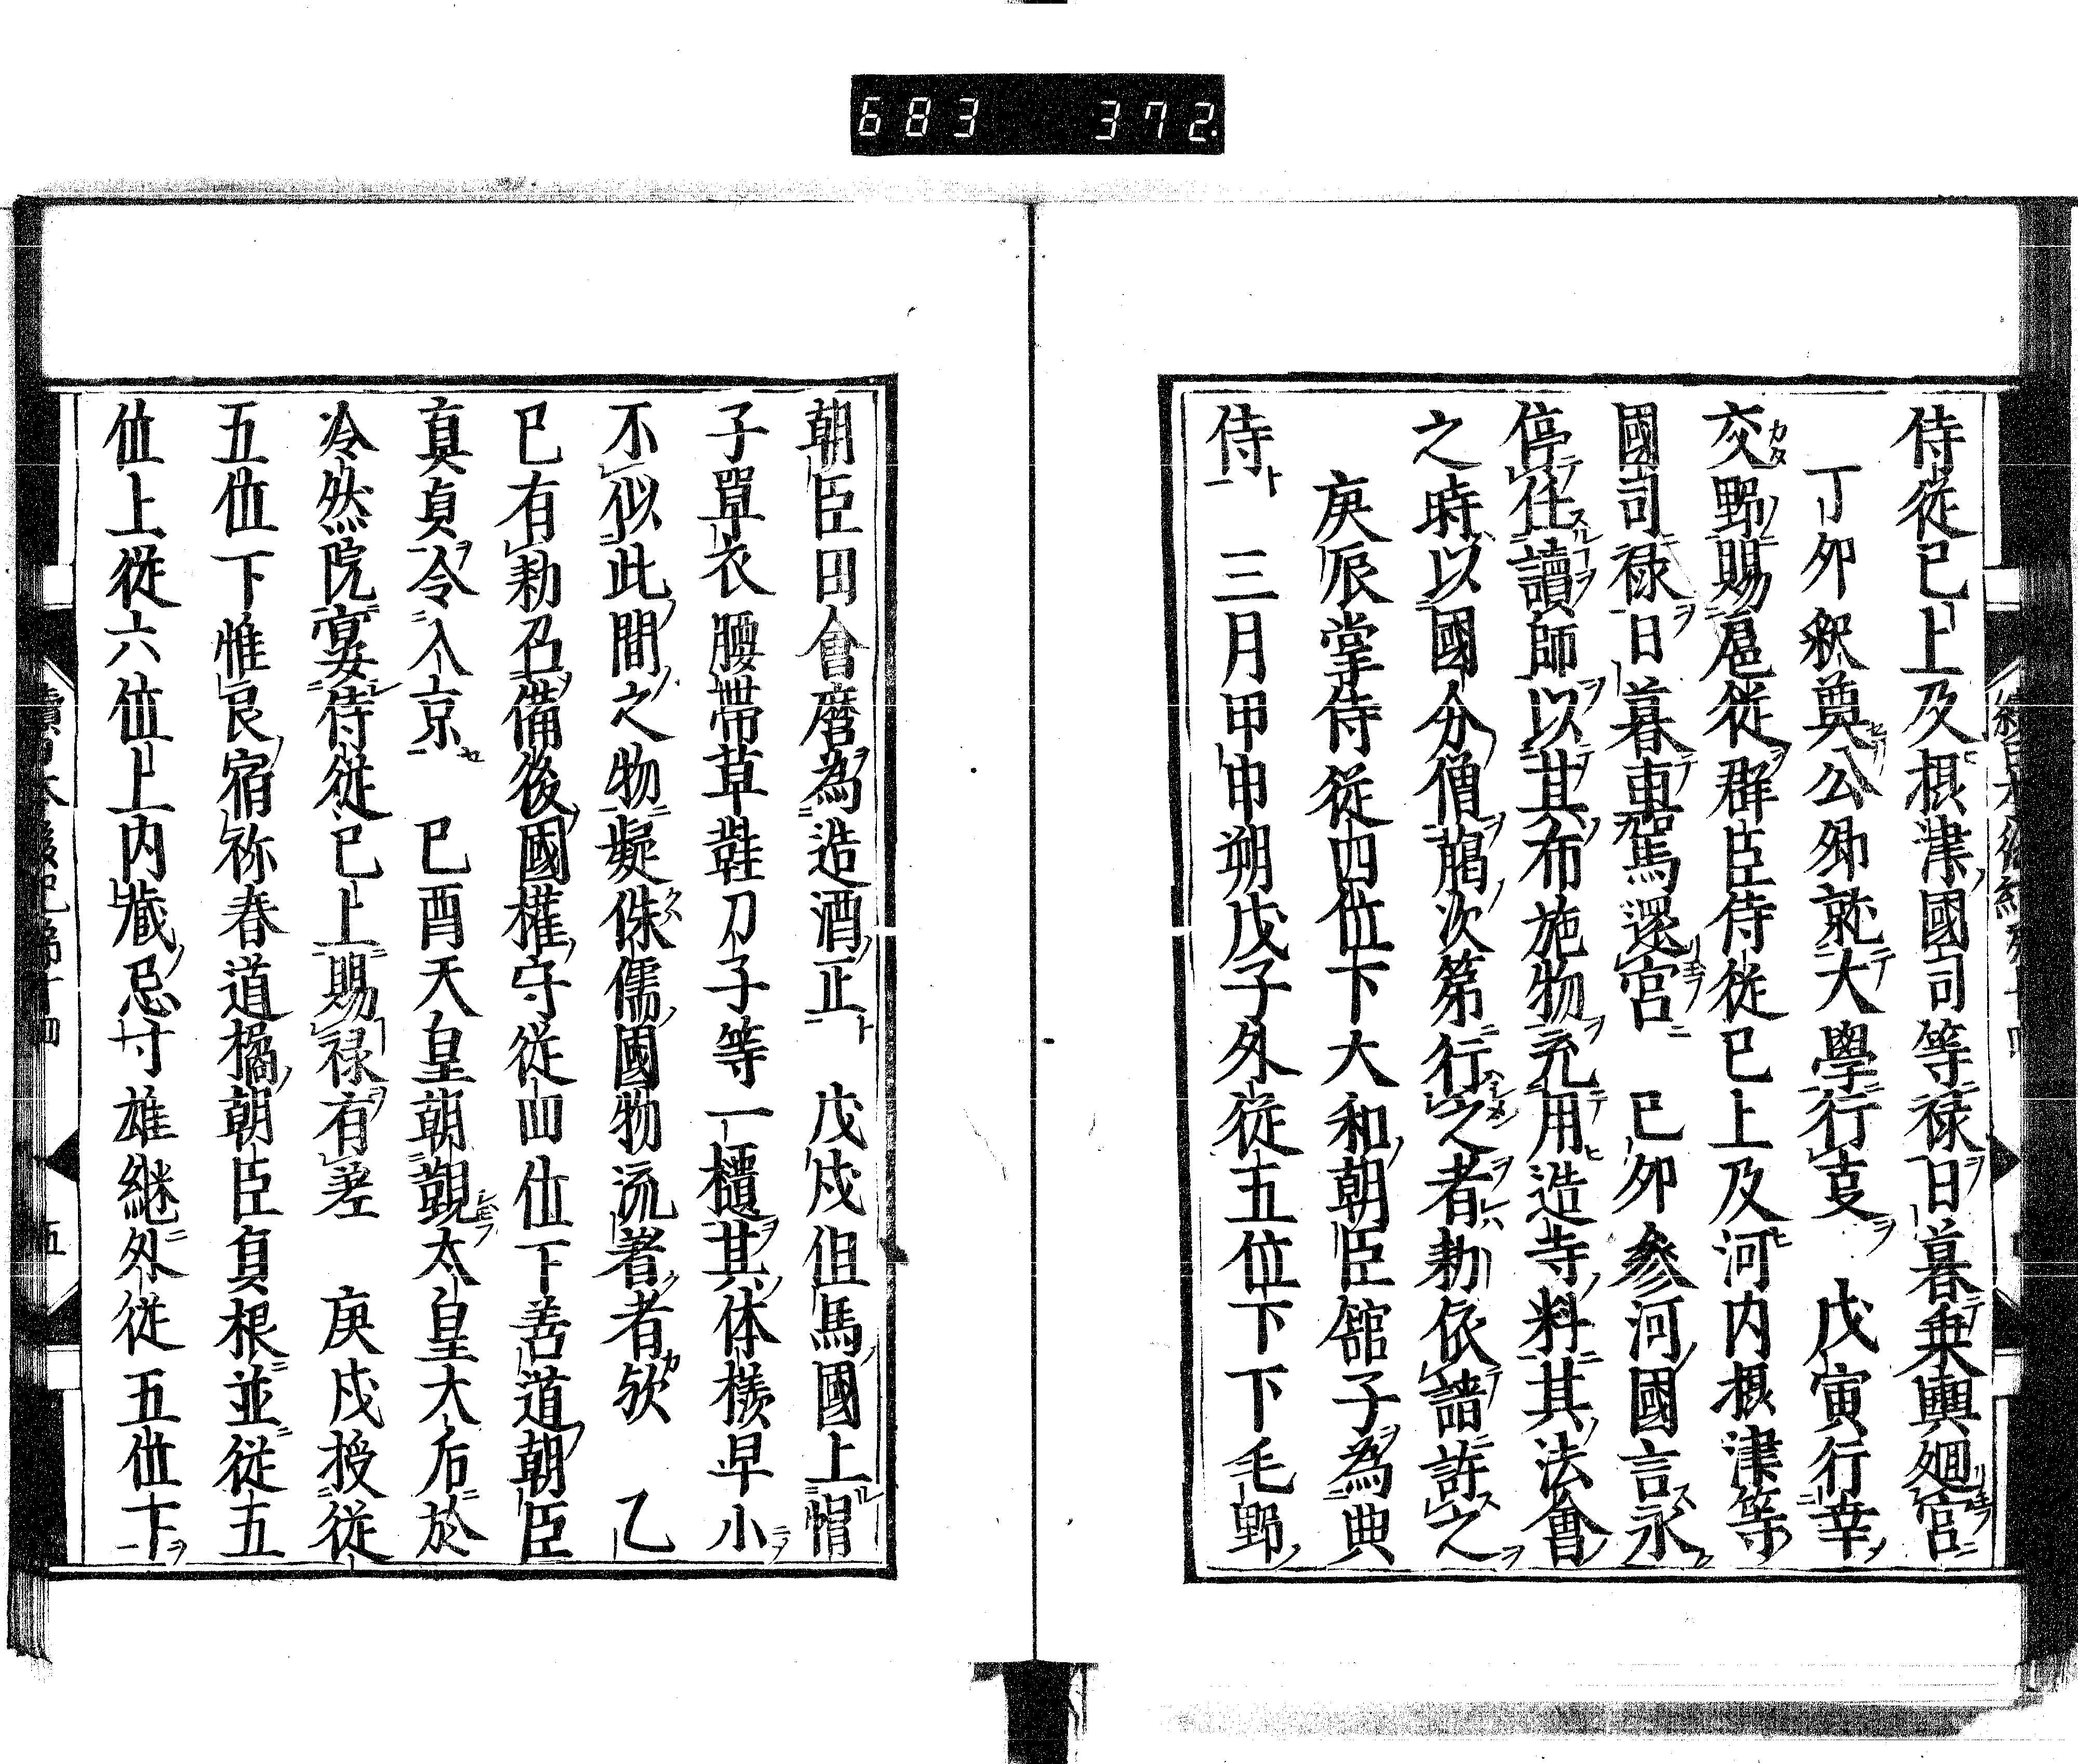 683 372.
侍從已上及摂津國司等禄日暮乗輿廻宮
丁夘釈奠公卿就大學行㕝 戊寅行幸
交野賜扈從群臣侍從已上及河内摂津等
國司禄日暮車駕還宮 已夘参河國言永
停任讀師以其布施物充用造寺料其法會
之時以國分僧﨟次第行之者勅依請許之
庚辰掌侍從四位下大和朝臣舘子為典
侍 三月甲申朔戊子外從五位下下毛野
朝臣田舎麿為造酒正 戊戌但馬國上帽
子單衣腰帶草鞋刀子等一櫃其体様早小
不似此間之物疑侏儒國物流着者欤 乙
巳有勅召備後國權守從四位下善道朝臣
真貞令入京 已酉天皇朝覲太皇大后於
冷然院宴侍從已上賜禄有差 庚戌授從
五位下惟良宿祢春道橘朝臣負根並從五
位上從六位上内蔵忌寸雄継外從五位下
五